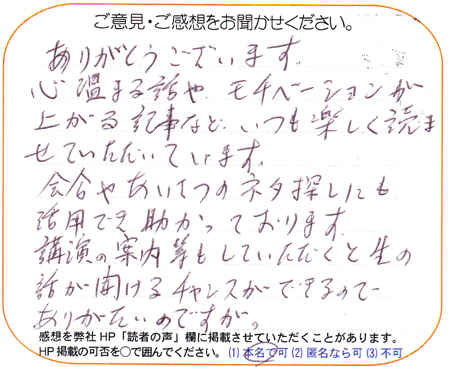 ご意見・ご感想をお聞かせください。
ありがとうございます。
心温まる話や、モチベーションが
上がる記事など、いつも楽しく読ま
せていただいています。
会合やあいさつのネタ探しにも
活用でき助かっております。
講演の案内等もしていただくと生の
話が聞けるチャンスができるので
ありがたいのですが。
感想を弊社HP「読者の声」欄に掲載させていただくことがあります。
HP掲載の可否を○で囲んでください。(1)本名で可 (2)匿名なら可 (3)不可